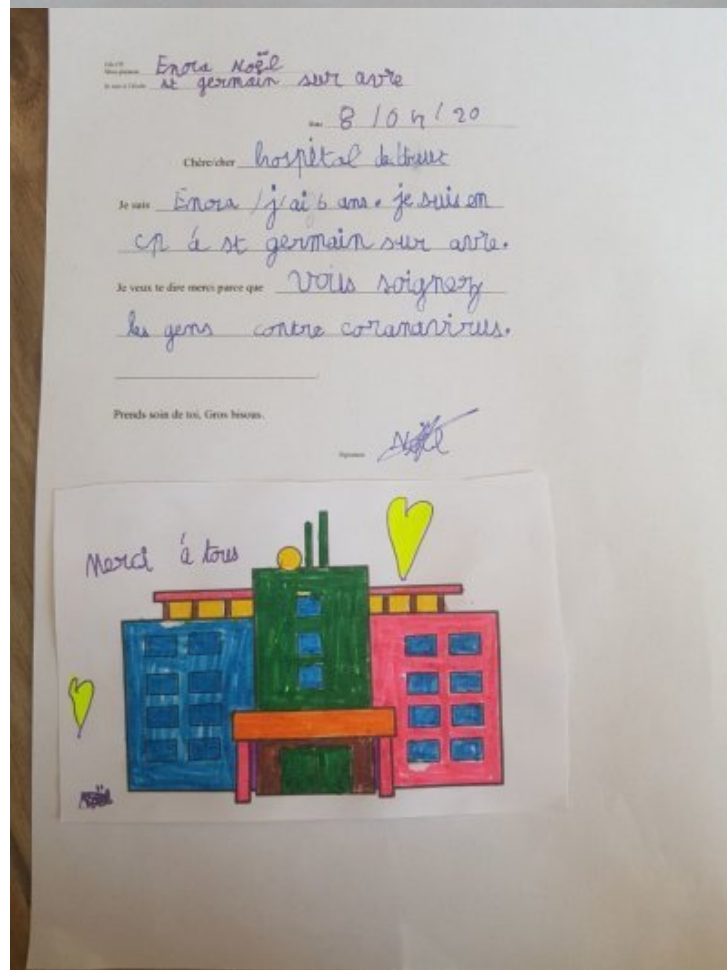 Enora Noël
st germain sur avre
8 / 04 / 20
Chère/cher hospital de
Je suis Enora / j'ai 6 ans. je suis en
cp à st germain sur avre.
Je veux te dire merci parce que vous soignez
les gens contre coranavirus.
Prends soin de toi, Gros bisous.
Signature Noël
Merci à tous
Noël